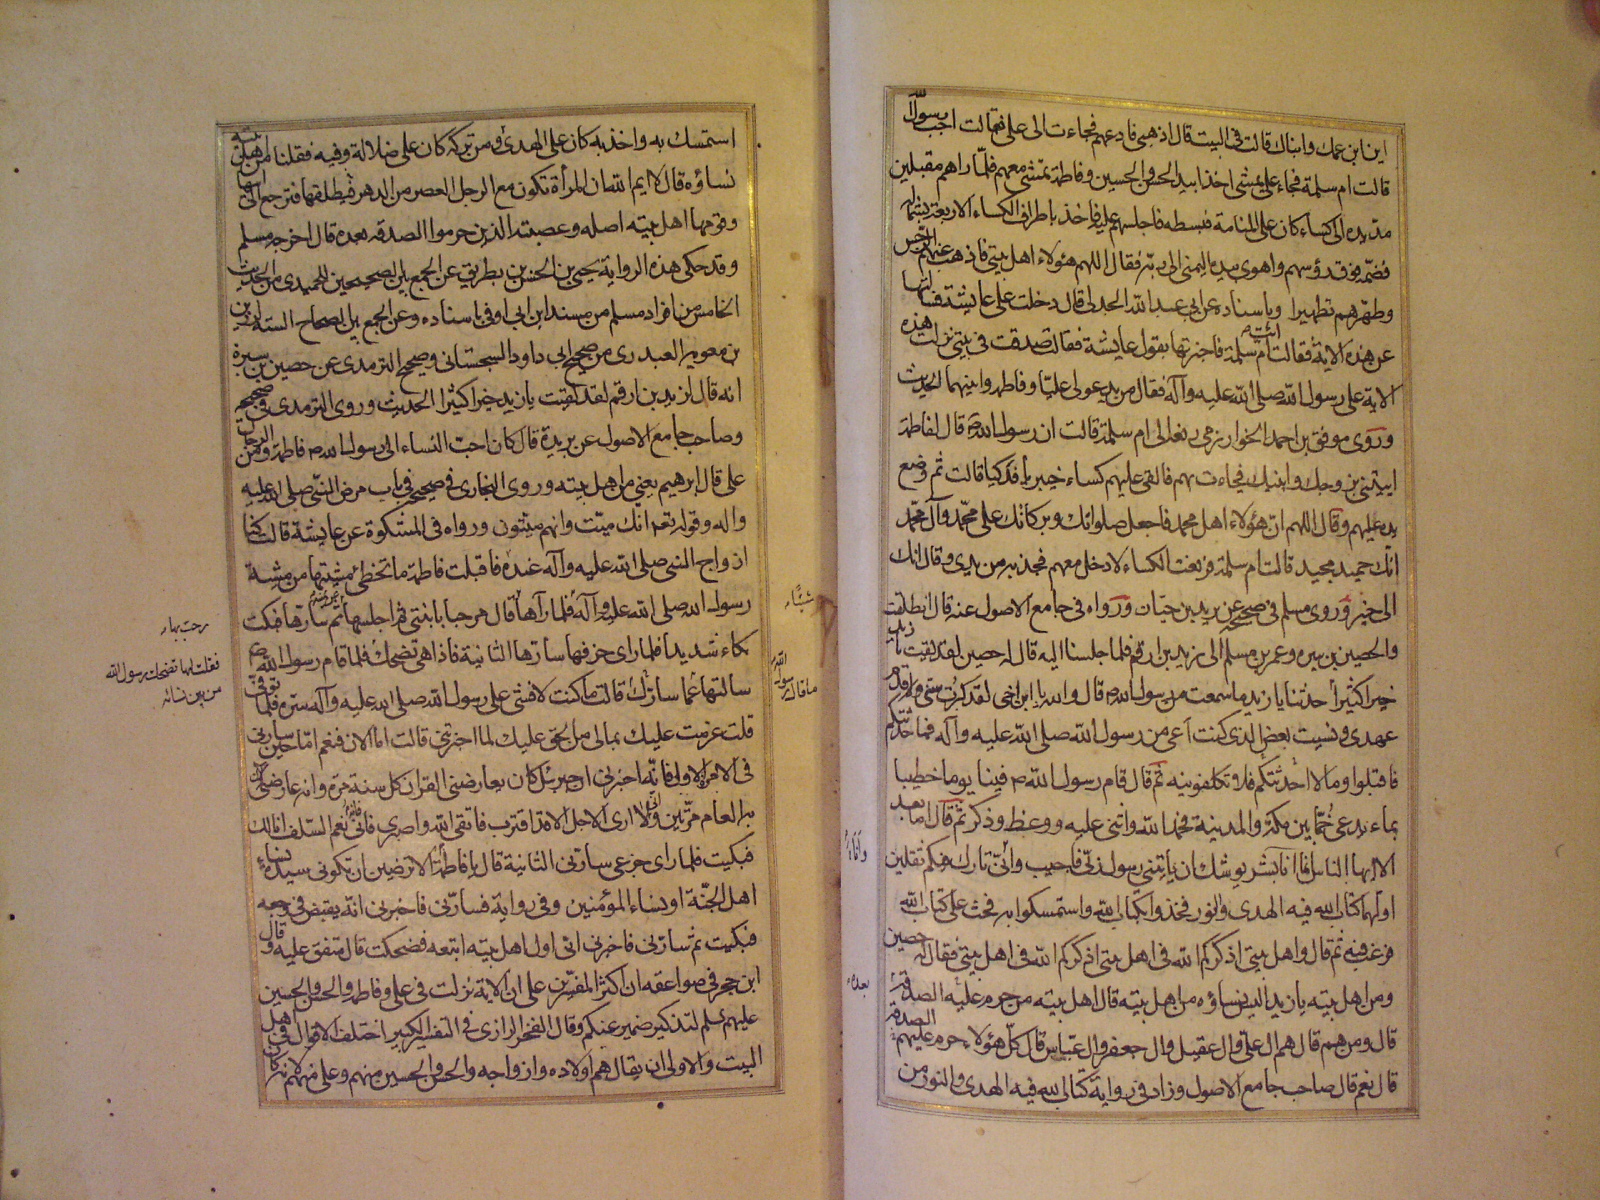 اين ابن عمك وابناك قالت فى البيت قال اذهبى فادعهم فجاءت الى على فقالت اجب رسول الله
قالت ام سلمة فجاء على يمشى اخذا بيد الحسن والحسين وفاطمة تمشى معهم فلما راهم مقبلين
مد يده الى كساء كان على المنامة فبسطه فاجلسهم عليه فاخذ باطراف الكساء الاربعة بشماله
فضمه فوق رؤسهم واهوى بيده اليمنى الى ربه فقال اللهم هؤلاء اهل بيتى فاذهب عنهم الرجس
وطهرهم تطهيرا وباسناده عن ابى عبد الله الجدلى قال دخلت على عايشة فسالتها
عن هذه الاية فقالت ائت ام سلمة فاخبرتها بقول عايشة فقالت صدقت فى بيتى نزلت هذه
الاية على رسول الله صلى الله عليه وآله فقال من يدعو لى عليا وفاطمة وابنيهما الحديث
وروى موفق بن احمد الخوارزمى رفعه الى ام سلمة قالت ان رسول الله ص قال لفاطمة
ايتينى بزوجك وابنيك فجاءت بهم فالقى عليهم كساء خيبريا فدكيا قالت ثم وضع
يده عليهم وقال اللهم ان هؤلاء اهل محمد فاجعل صلواتك وبركاتك على محمد وآل محمد
انك حميد مجيد قالت ام سلمة فرفعت الكساء لادخل معهم فجذبه من يدى وقال انك
الى خير وروى مسلم فى صحيحه عن يزيد بن حيان ورواه فى جامع الاصول عنه قال انطلقت
والحصين بن سبرة وعمر بن مسلم الى زيد بن ارقم فلما جلسنا اليه قال له حصين لقد لقيت يا زيد
خيرا كثيرا حدثنا يا زيد ما سمعت من رسول الله ص قال والله يا ابن اخى لقد كبرت سنى وقدم
عهدى ونسيت بعض الذى كنت اعى من رسول الله صلى الله عليه وآله فما حدثتكم
فاقبلوا وما لا احدثتكم فلا تكلفونيه ثم قال قام رسول الله ص فينا يوما خطيبا
بماء يدعى خما بين مكة والمدينة فحمد الله واثنى عليه ووعظ وذكر ثم قال اما بعد
الا ايها الناس انما انا بشر يوشك ان ياتينى رسول ربى فاجيب وانى تارك فيكم ثقلين
اولهما كتاب الله فيه الهدى والنور فخذوا بكتاب الله واستمسكوا به فحث على كتاب الله
ورغب فيه ثم قال واهل بيتى اذكركم الله فى اهل بيتى اذكركم الله فى اهل بيتى فقال له حصين
ومن اهل بيته يا زيد اليس نساؤه من اهل بيته قال اهل بيته من حرم عليه الصدقة
قال ومن هم قال هم ال على وال عقيل وال جعفر وال عباس قال كل هؤلاء حرم عليهم الصدقة
قال نعم قال صاحب جامع الاصول وزاد فى رواية كتاب الله فيه الهدى والنور من
بعده
استمسك به واخذ به كان على الهدى ومن تركه كان على ضلالة وفيه فقلنا من اهل بيته
نساؤه قال لا ايم الله ان المرأة تكون مع الرجل العصر من الدهر فيطلقها فترجع الى ابيها
وقومها اهل بيته اصله وعصبته الذين حرموا الصدقه بعده قال اخرجه مسلم
وقد حكى هذه الرواية يحيى بن الحسن بن بطريق عن الجمع بين الصحيحين للحميدى من الحديث
الخامس من افراد مسلم من مسند ابن ابى اوفى باسناده وعن الجمع بين الصحاح الستة لرزين
بن معوية العبدرى من صحيح ابى داود السجستانى وصحيح الترمذى عن حصين بن سبرة
انه قال لزيد بن ارقم لقد لقيت يا زيد خيرا كثيرا الحديث وروى الترمذى فى صحيحه
وصاحب جامع الاصول عن بريدة قال كان احب النساء الى رسول الله ص فاطمة ومن الرجال
على قال ابرهيم يعنى من اهل بيته وروى البخارى فى صحيحه فى باب مرض النبى صلى الله عليه
واله وقوله تعه انك ميت وانهم ميتون ورواه فى المشكوة عن عايشة قالت كنا
ازواج النبى صلى الله عليه وآله عنده فاقبلت فاطمة ما تخطئ مشيتها من مشية
رسول الله صلى الله عليه وآله فلما رآها قال مرحبا بابنتى ثم اجلسها ثم سارها فبكت
بكاء شديدا فلما راى حزنها سارها الثانية فاذا هى تضحك فلما قام رسول الله ص
سالتها عما سارك قالت ما كنت لافشى على رسول الله صلى الله عليه وآله سره فلما توفى
قلت عزمت عليك بما لى من الحق عليك لما اخبرتنى قالت اما الان فنعم اما حين سارنى
فى الامر الاول فانه اخبرنى ان جبرئيل كان يعارضنى القران كل سنة مرة وانه عارضنى
به العام مرتين ولا ارى الاجل الا قد اقترب فاتقى الله واصبرى فانى نعم السلف انا لك
فبكيت فلما راى جزعى سارنى الثانية قال يا فاطمة الا ترضين ان تكونى سيدة نساء
اهل الجنة او نساء المؤمنين وفى رواية فسارنى فاخبرنى انه يقبض فى وجعه
فبكيت ثم سارنى فاخبرنى انى اول اهل بيته اتبعه فضحكت قال متفق عليه وقال
ابن حجر فى صواعقه ان اكثر المفسرين على ان الاية نزلت فى على وفاطمة والحسن والحسين
عليهم السلم لتذكير ضمير عنكم وقال الفخر الرازى فى التفسير الكبير اختلف الاقوال فى اهل
البيت والاولى ان يقال هم اولاده وازواجه والحسن والحسين منهم وعلى منهم لانه كان
ما قال رسول الله
فقلت لها تضحك رسول الله
من بين نسائه